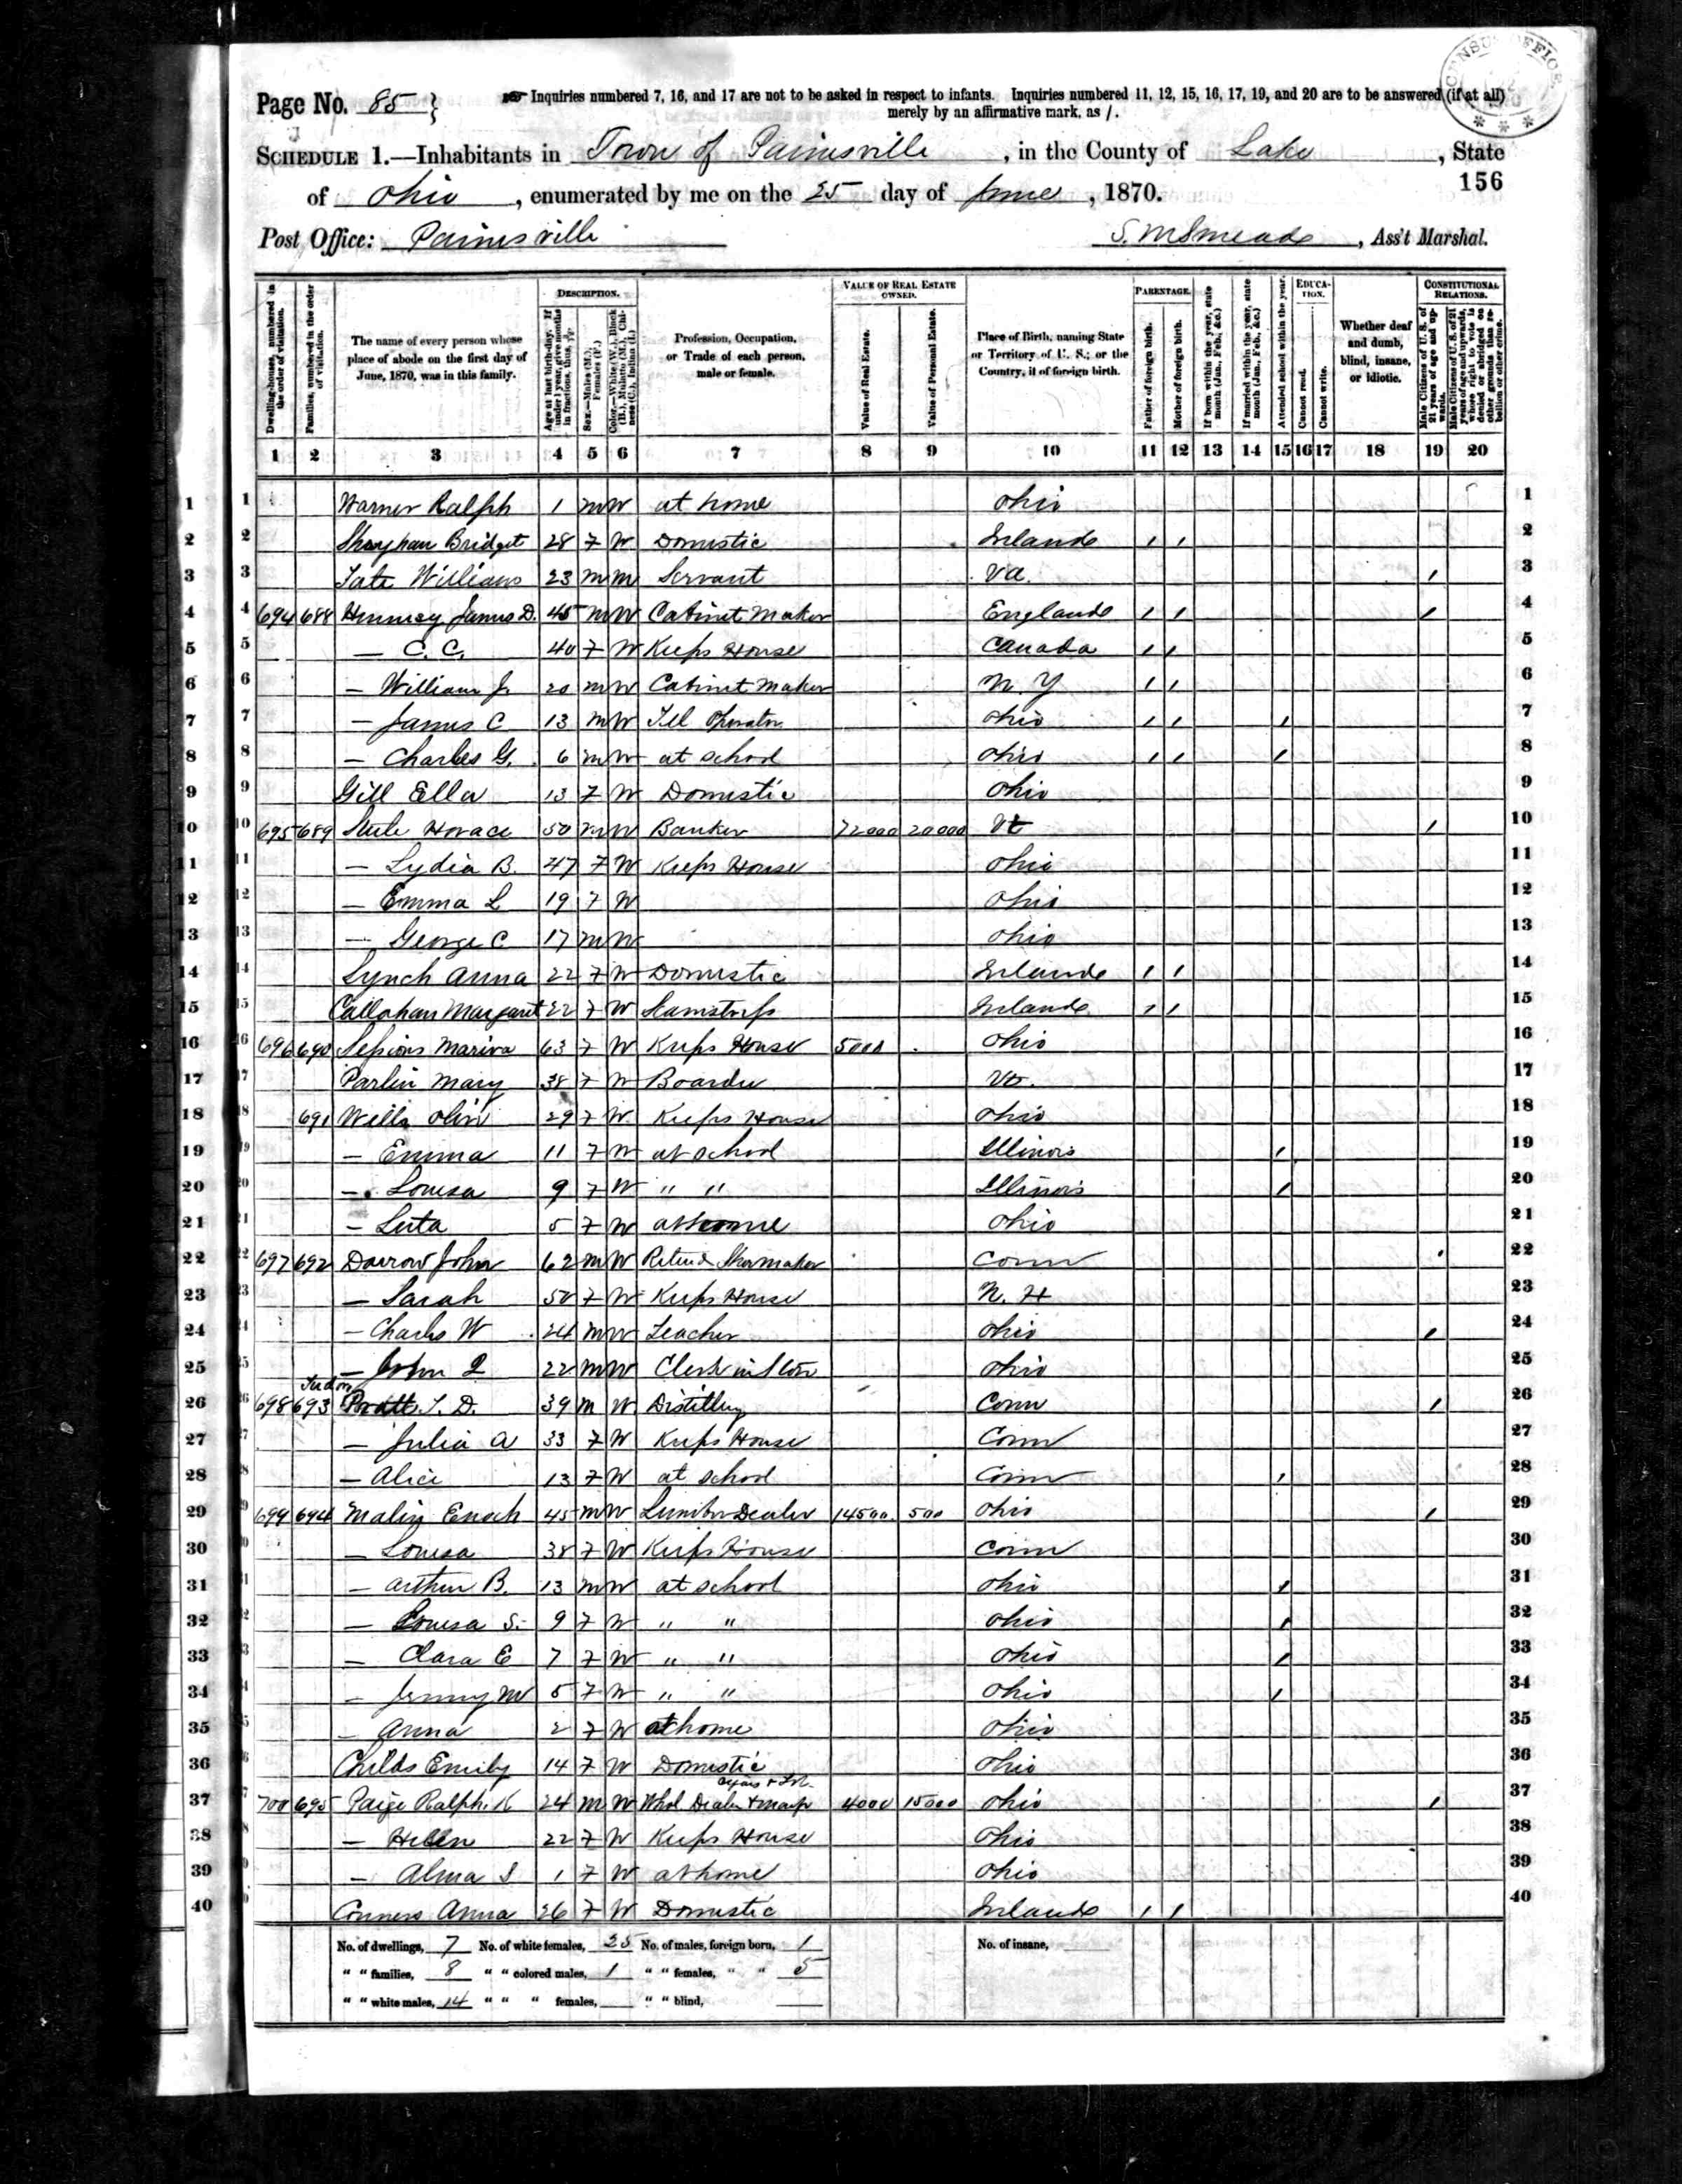 Page No. 85 } Inquiries numbered 7, 16, and 17 are not to be asked in respect to infants. Inquiries numbered 11, 12, 15, 16, 17, 19, and 20 are to be answered (if at all)
merely by an affirmative mark, as /.
SCHEDULE 1.—Inhabitants in Town of Painesville, in the County of Lake, State
of Ohio, enumerated by me on the 25 day of June, 1870.
156
Post Office: Painesville
Ass't Marshal.
DESCRIPTION.
VALUE OF REAL ESTATE OWNED.
PARENTAGE.
EDUCATION.
CONSTITUTIONAL RELATIONS.
Dwelling-houses, numbered in the order of visitation.
Families, numbered in the order of visitation.
The name of every person whose place of abode on the first day of June, 1870, was in this family.
Age at last birth-day. If under 1 year, give months in fractions, thus,
Sex.—Males (M.), Females (F.)
Color.—White (W.), Black (B.), Mulatto (M.), Chinese (C.), Indian (I.)
Profession, Occupation, or Trade of each person, male or female.
Value of Real Estate.
Value of Personal Estate.
Place of Birth, naming State or Territory of U. S.; or the Country, if of foreign birth.
Father of foreign birth.
Mother of foreign birth.
If born within the year, state month (Jan., Feb., &c.)
If married within the year, state month (Jan., Feb., &c.)
Attended school within the year.
Cannot read.
Cannot write.
Whether deaf and dumb, blind, insane, or idiotic.
Male Citizens of U. S. of 21 years of age and upwards.
Male Citizens of U. S. of 21 years of age and upwards, whose right to vote is denied or abridged on other grounds than rebellion or other crime.
1 2 3 4 5 6 7 8 9 10 11 12 13 14 15 16 17 18 19 20
1 Warner Ralph 1 m W at home Ohio 1
2 Bridget 28 F W Domestic Ireland / / 2
3 Tate William 23 m m Servant Va. / 3
4 694 688 James D. 45 m W Cabinet Maker England / / / 4
5 — C. C. 40 F W Keeps House Canada / / 5
6 — William J 20 m W Cabinet Maker N. Y / / 6
7 — James C 13 m W Tell Operator Ohio / / / 7
8 — Charles G. 6 m W at school Ohio / / / 8
9 Gill Ella 13 F W Domestic Ohio 9
10 695 689 Steele Horace 50 m W Banker 72000 20000 Vt / 10
11 — Lydia B. 47 F W Keeps House Ohio 11
12 — Emma L 19 F W Ohio 12
13 — George C 17 m W Ohio 13
14 Lynch Anna 22 F W Domestic Ireland / / 14
15 Callahan Margaret 22 F W Seamstress Ireland / / 15
16 696 690 Sessions 63 F W Keeps House 5000 Ohio 16
17 Parlin Mary 38 F W Boarder Vt. 17
18 691 Wells 29 F W Keeps House Ohio 18
19 — Emma 11 F W at school Illinois / 19
20 — Louisa 9 F W " " Illinois / 20
21 — 5 F W at home Ohio 21
22 697 692 Darrow John 62 m W Retired Shoemaker Conn / 22
23 — Sarah 50 F W Keeps House N. H 23
24 — Charles W 24 m W Teacher Ohio / 24
25 — John 22 m W Clerk in Store Ohio 25
26 698 693 Pratt D. 39 m W Distillery Conn / 26
27 — Julia A 33 F W Keeps House Conn 27
28 — Alice 13 F W at school Conn / 28
29 699 694 Malin Enoch 45 m W Lumber Dealer 14500 500 Ohio / 29
30 — Louisa 38 F W Keeps House Conn 30
31 — Arthur B. 13 m W at school Ohio / 31
32 — Louisa S. 9 F W " " Ohio / 32
33 — Clara E 7 F W " " Ohio / 33
34 — Jenny M 5 F W " " Ohio / 34
35 — Anna 2 F W at home Ohio 35
36 Childs Emily 14 F W Domestic Ohio 36
37 700 695 Paige Ralph K 24 m W Whol Dealer + Manf 4000 15000 Ohio / 37
38 — Hellen 22 F W Keeps House Ohio 38
39 — Alma 1 F W at home Ohio 39
40 Conners Anna 26 F W Domestic Ireland / / 40
No. of dwellings, 7 No. of white females, 25 No. of males, foreign born, 1 No. of insane,
" " families, 8 " " colored males, 1 " " females, " " 5
" " white males, 14 " " " females, " " blind,